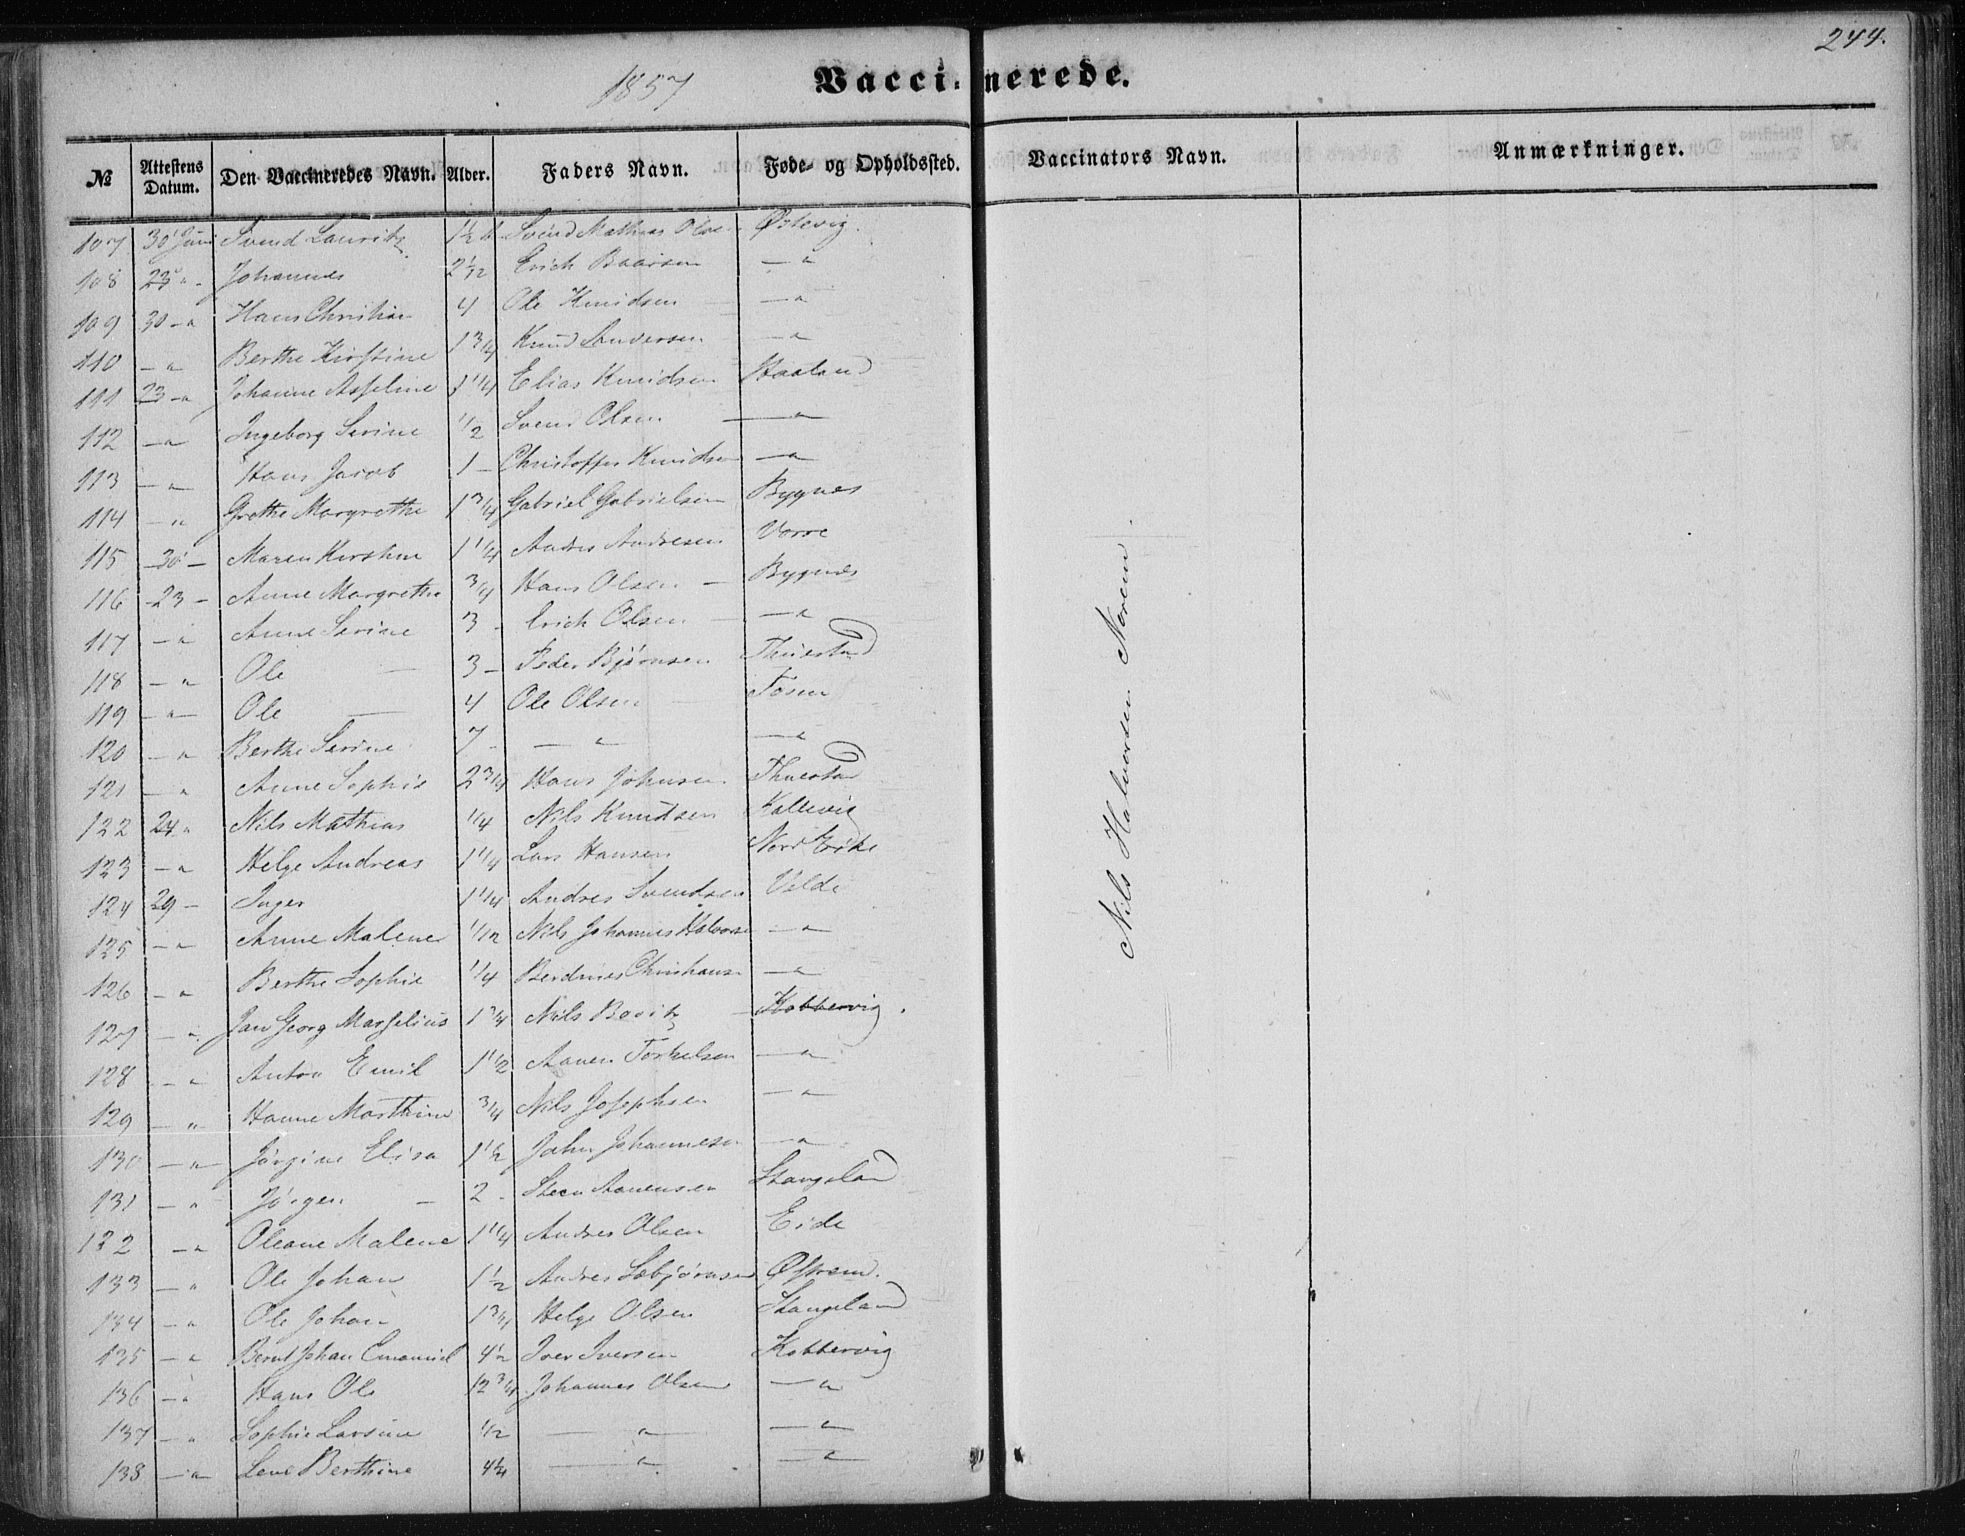 244.
1857
Vaccinerede.
№ Attestens Datum. Den Vaccineredes Navn. Alder. Faders Navn. Føde- og Opholdssted. Vaccinators Navn. Anmærkninger.
107 30 Juni Svend Lauritz 1½ Svend Mathias Olse Østevig.
108 23 " Johannes 2 1/12 Erich Baarsen — "
109 30 — " Hans Christian 4 Ole Knudsen — "
110 — " Berthe Kirstine 1 3/4 Knud Andersen — "
111 23 — " Johanne Asseline 1 1/4 Elias Knudsen Haaland
112 — " Ingeborg Serine 1/2 Svend Olsen — "
113 — " Hans Jacob 1 — Christoffer Knudsen — "
114 — " Grethe Margrethe 1 3/4 Gabriel Gabrielsen Bygnes
115 — 30 — Maren Kirstine 1 1/4 Andres Andresen Vorre
116 — 23 — Anne Margrethe 3/4 Hans Olsen — Bygnes
117 — " Anne Serine 3 — Erich Olsen — "
118 — " Ole — 3 — Peder Bjørnsen Thuestad
119 — " — Ole — 4 Ole Olsen Tosen
120 — " Berthe Serine 7 — — " — "
121 — " Anne Sophie 2 3/4 Hans Johnsen Thuestad
122 24 " Nils Mathias 1/4 Nils Knudsen Kallevig
123 — " Helge Andreas 1 1/4 Lars Hansen Nord
124 29 — Inger 1 1/4 Andres Svendsen Velde
125 — " Anne Malene 1/12 Nils Johannes Halvorse — "
126 — " Berthe Sophie 1/4 Berdines Christianse — "
127 — " Jan Georg Marselius 1 3/4 Nils Bovitz Kobbervig.
128 — " Anton Emil 1 1/2 Aanen Torkelsen — "
129 — " Hanne Marthine 3/4 Nils Josephsen — "
130 — " — Jørgine Elisa 1 1/2 John Johannesen — "
131 — " Jørgen — 2 — Steen Aanensen Stangeland
132 — " Oleane Malene 1 1/4 Andres Olsen Eide
133 — " Ole Johan 1½ Andres Sæbjørnsen Østrem.
134 — " Ole Johan 1 3/4 Helge Olsen Stangeland
135 — " Bernt Johan Emanuel 4½ Iver Iversen Kobbervig
136 — " Hans Ole 12 3/4 Johannes Olsen — "
137 — " Sophie Lavsine 1/2 — " — "
138 — " — Lene Berthine 4½ — " — "
Nils Halvorsen Norem.